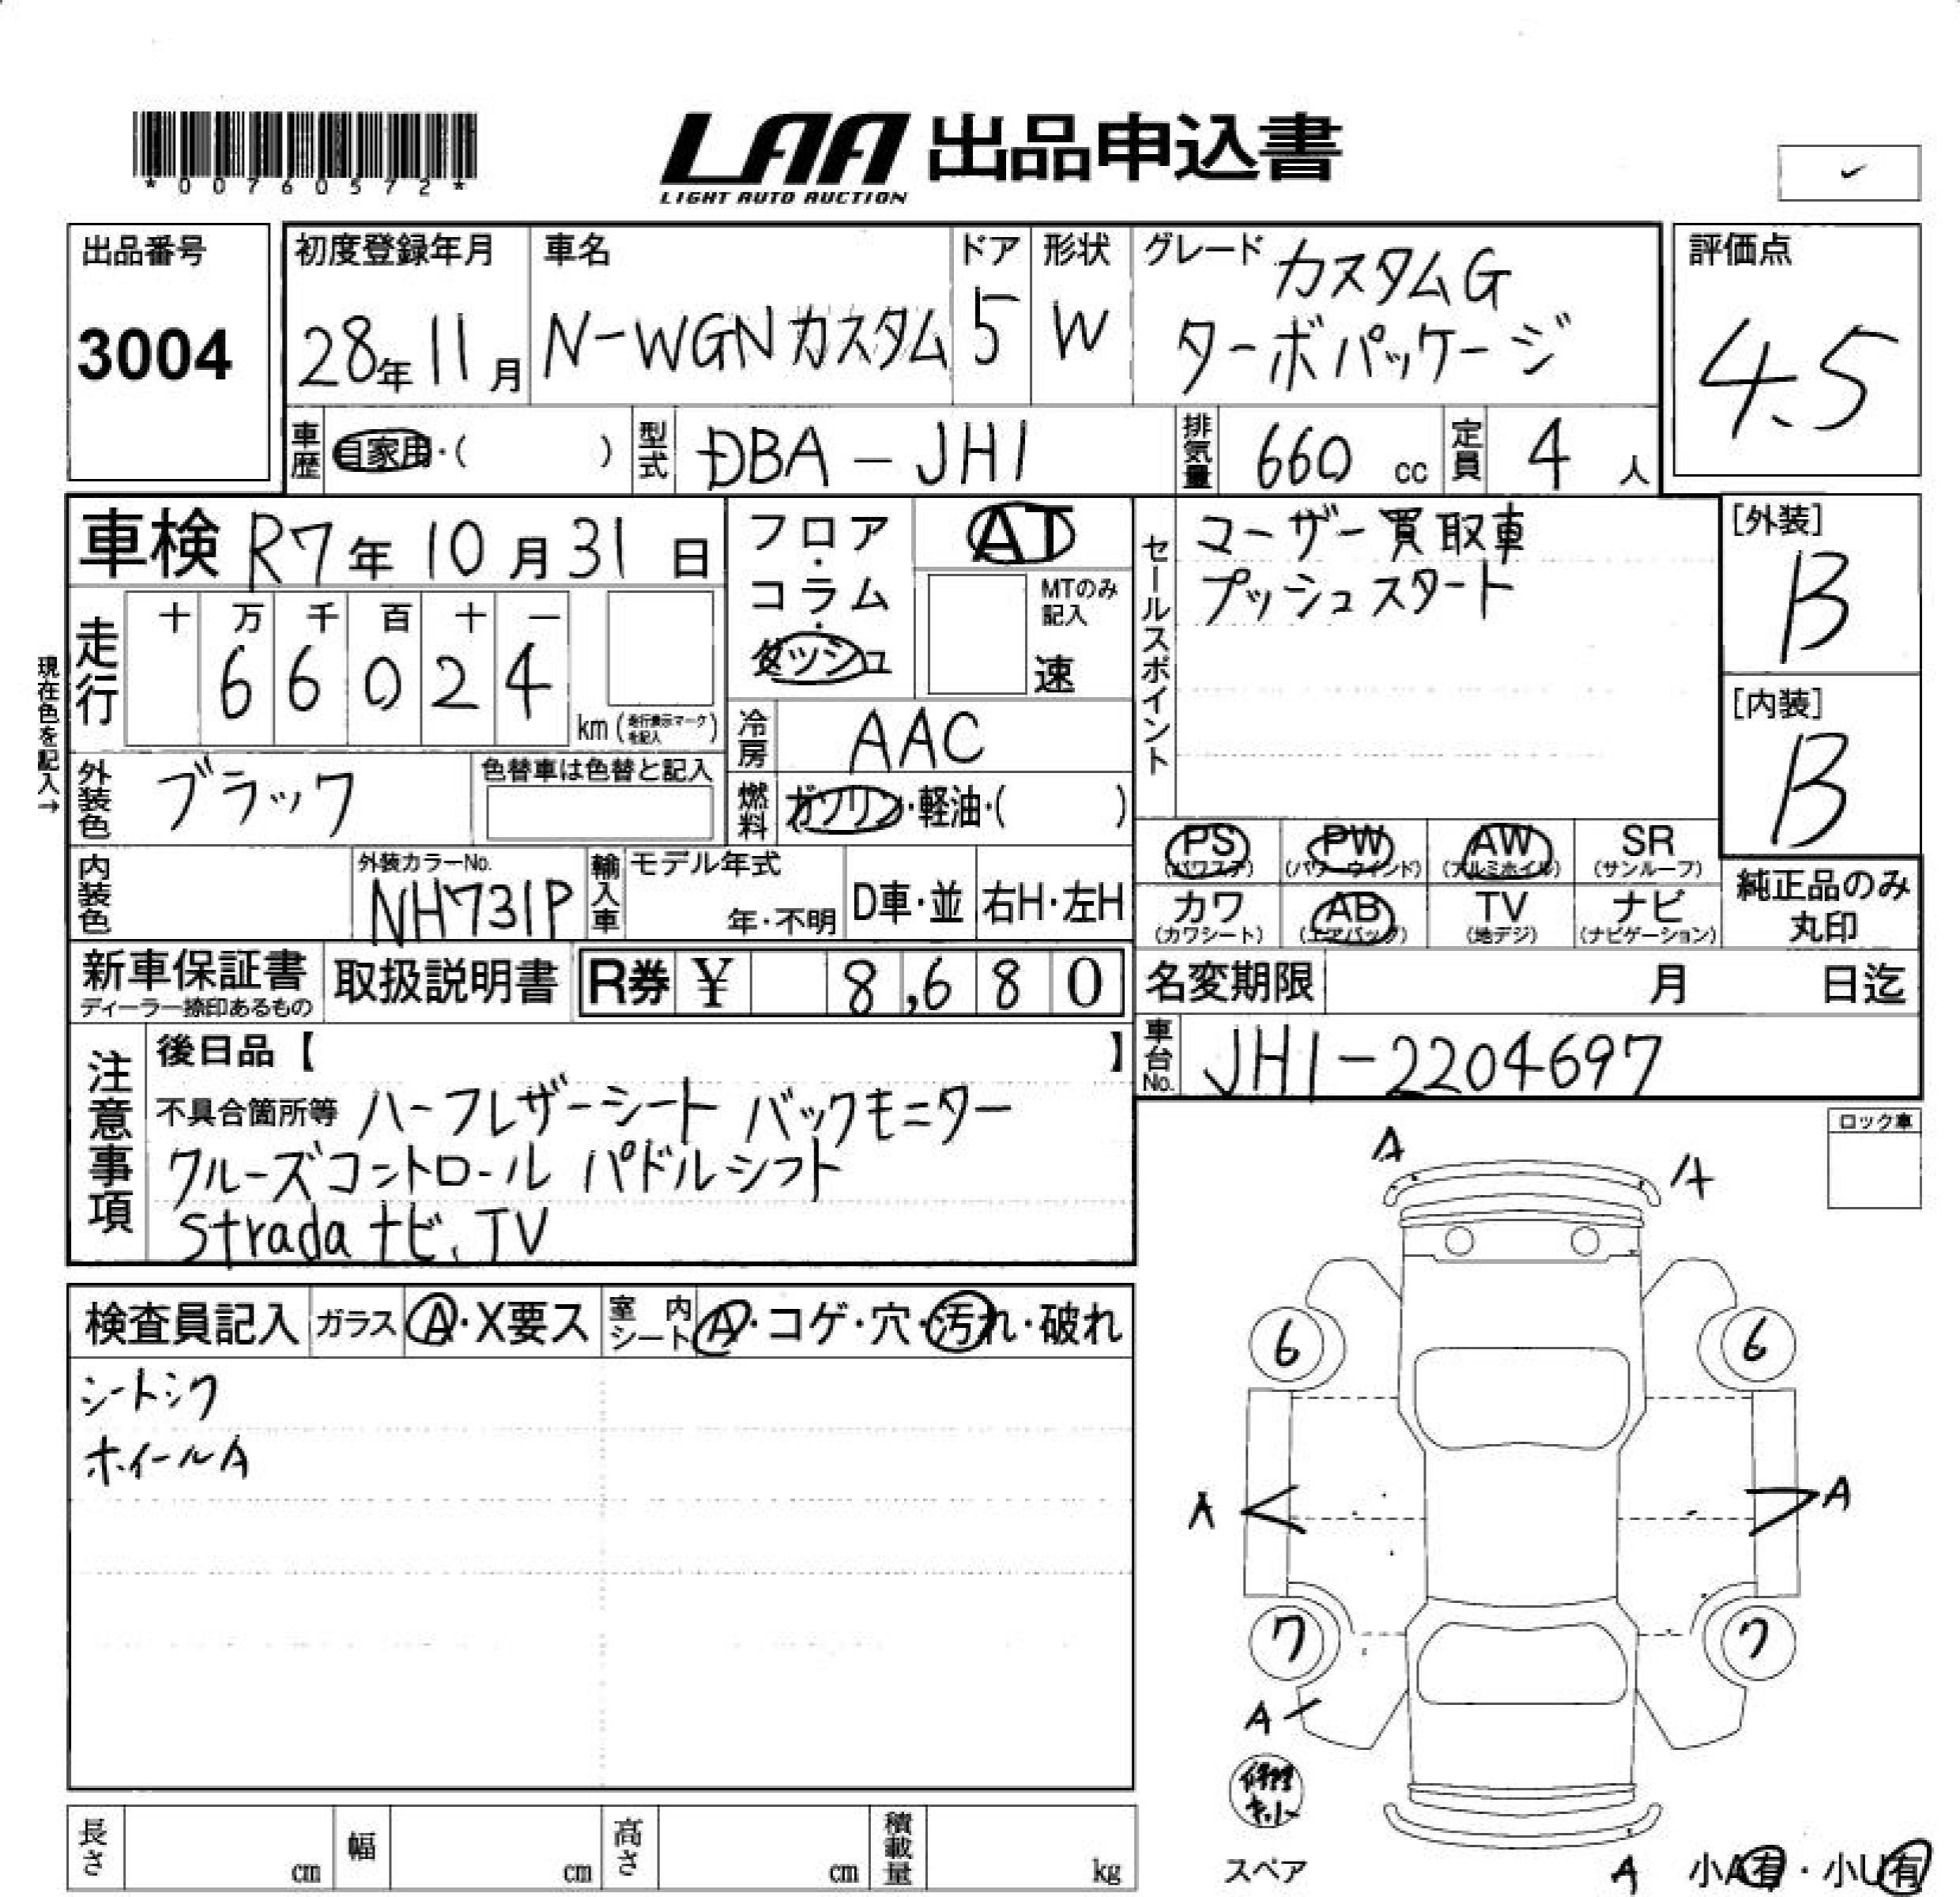 *00760572*
LAA 出品申込書
LIGHT AUTO AUCTION
出品番号
3004
初度登録年月
28年11月
車名
N-WGNカスタム
ドア
5
形状
W
グレード カスタムG
ターボパッケージ
評価点
4.5
車歴
自家用・( )
型式
DBA-JH1
排気量
660 cc
定員
4 人
車検 R7年10月31日
フロア・コラム・ダッシュ
AT
MTのみ記入
速
セールスポイント
ユーザー買取車
プッシュスタート
[外装]
B
[内装]
B
現在色を記入→
走行
十 万 千 百 十 一
6 6 0 2 4
km(走行表示マークを記入)
冷房
AAC
外装色
ブラック
色替車は色替と記入
燃料
ガソリン・軽油・( )
PS
(パワステ)
PW
(パワーウインド)
AW
(アルミホイル)
SR
(サンルーフ)
カワ
(カワシート)
AB
(エアバック)
TV
(地デジ)
ナビ
(ナビゲーション)
純正品のみ
丸印
内装色
外装カラーNo.
NH731P
輸入車
モデル年式
年・不明
D車・並
右H・左H
新車保証書
ディーラー捺印あるもの
取扱説明書
R券 ¥ 8,680
名変期限 月 日迄
車台No.
JH1-2204697
注意事項
後日品【 】
不具合箇所等 ハーフレザーシート バックモニター
クルーズコントロール パドルシフト
Stradaナビ、TV
ロック車
A
A
検査員記入
ガラス
A・X要ス
室内シート
A・コゲ・穴・汚れ・破れ
シートシワ
ホイールA
6
6
A
A
7
7
A
修理キット
スペア
A
小A有・小U有
長さ cm
幅 cm
高さ cm
積載量 kg